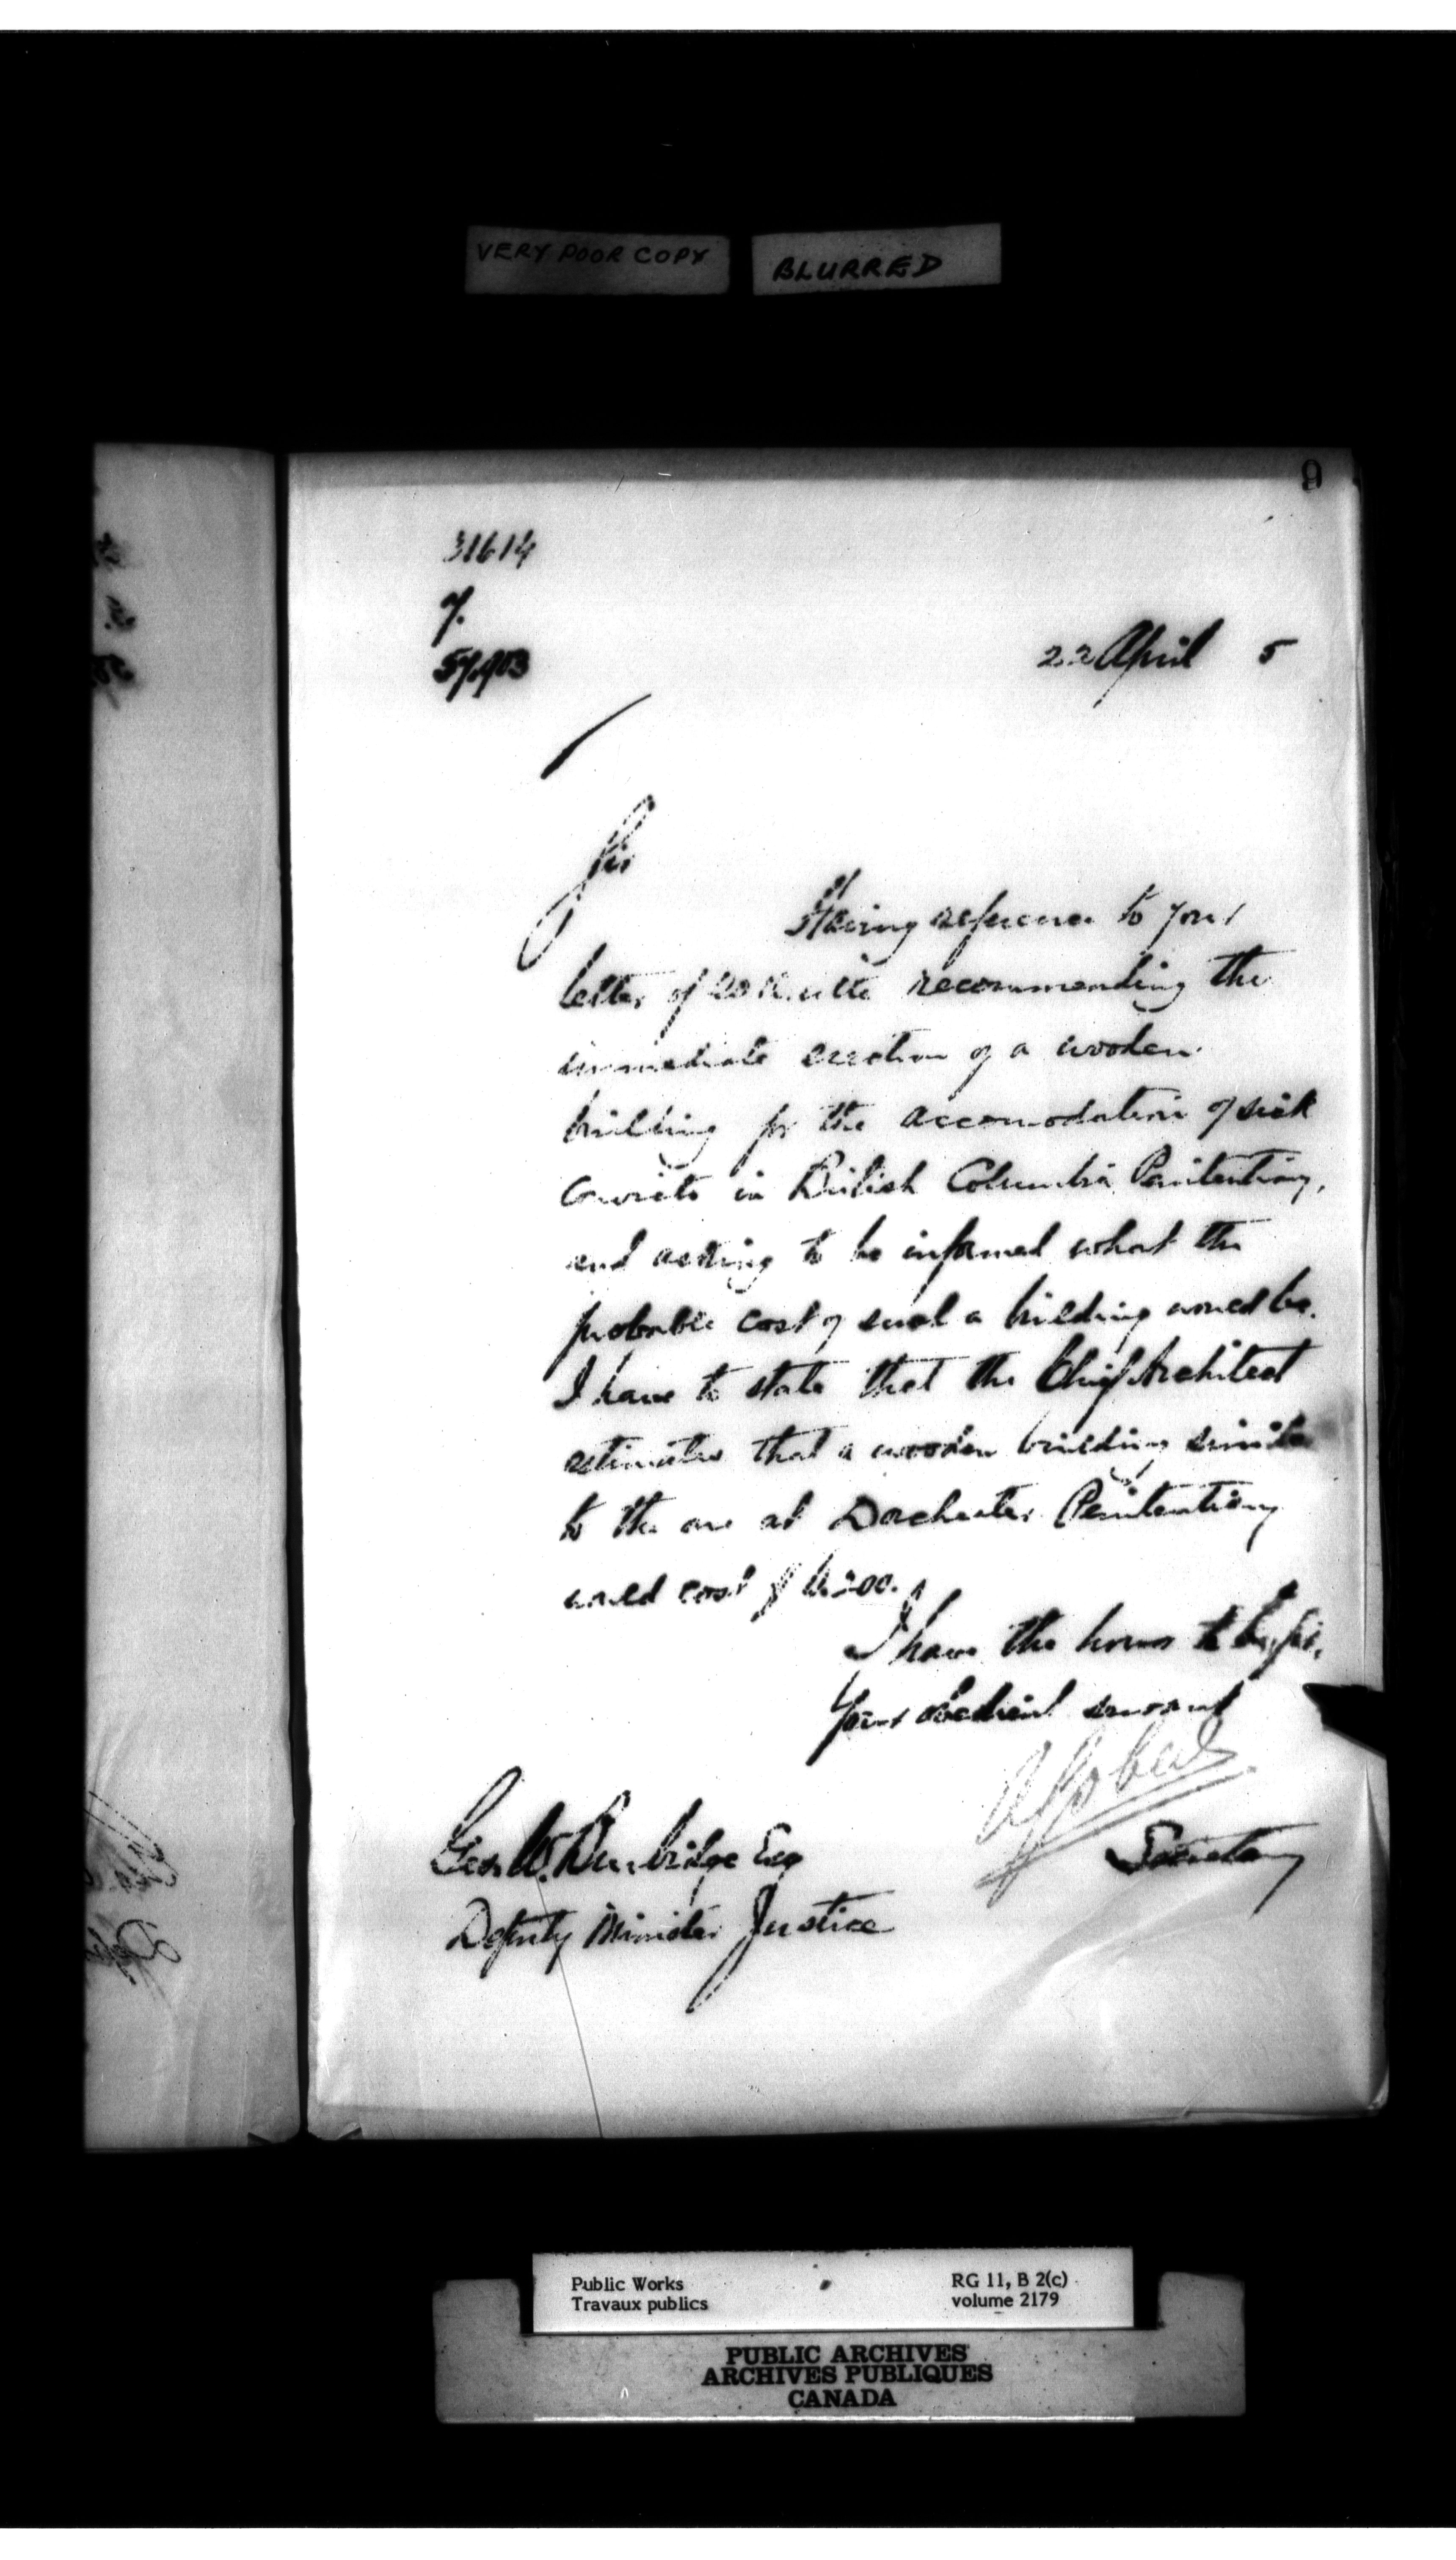 VERY POOR COPY
BLURRED
9
31614
22 April 5
Sir
Having reference to your
letter of recommending the
immediate erection of a wooden
building for the accomodation of sick
Convicts in British Columbia Penitentiary,
and asking to be informed what the
probable cost of such a building would be.
I have to state that the Chief Architect
estimates that a wooden building similar
to the one at Dorchester Penitentiary
would cost $
I have the honor to be, Sir,
Your obedient servant
Secretary
Geo. W. Burbidge Esq
Deputy Minister Justice
Public Works
Travaux publics
RG 11, B 2(c)
volume 2179
PUBLIC ARCHIVES
ARCHIVES PUBLIQUES
CANADA